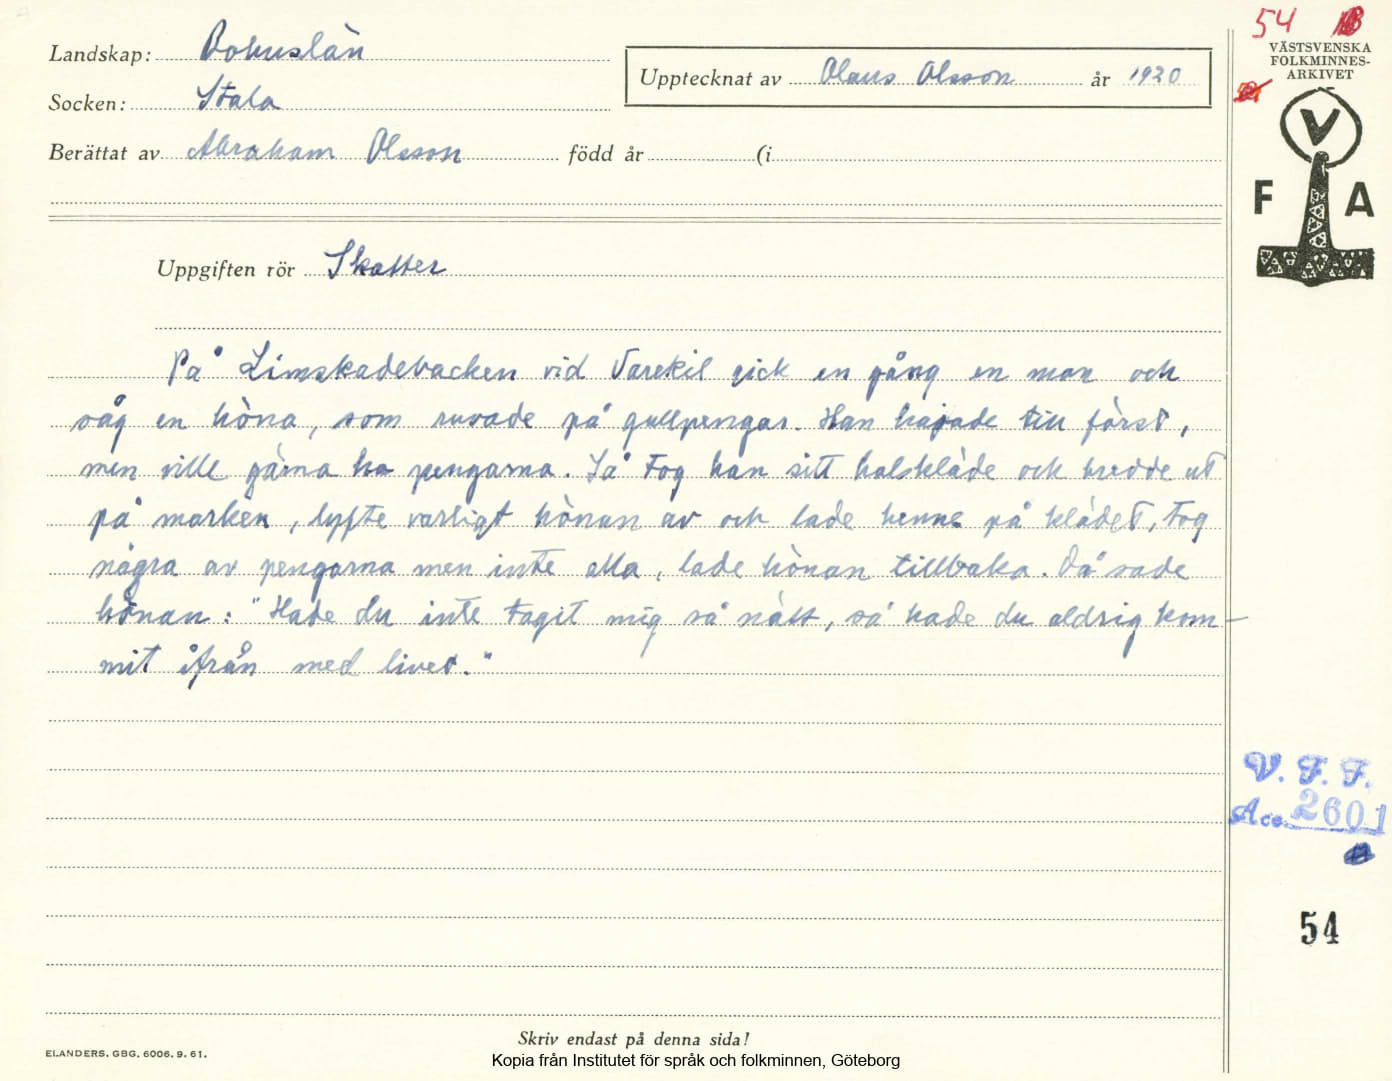 54
VÄSTSVENSKA
FOLKMINNES-
ARKIVET
V
F A
Landskap: Bohuslän
Socken: Stala
Berättat av Abraham Olsson född år (i
Upptecknat av Olaus Olsson år 1920
Uppgiften rör Skatter
På Limskadebacken vid Varekil gick en gång en man och
såg en höna, som ruvade på gullpengar. Han hajade till först,
men ville gärna ha pengarna. Så tog han sitt halskläde och bredde ut
på marken, lyfte varligt hönan av och lade henne på klädet, tog
några av pengarna men inte alla, lade hönan tillbaka. Då sade
hönan: "Hade du inte tagit mig så nätt, så hade du aldrig kom-
mit ifrån med livet."
V. F. F.
Acc. 2601
54
Skriv endast på denna sida!
ELANDERS. GBG. 6006. 9. 61.
Kopia från Institutet för språk och folkminnen, Göteborg